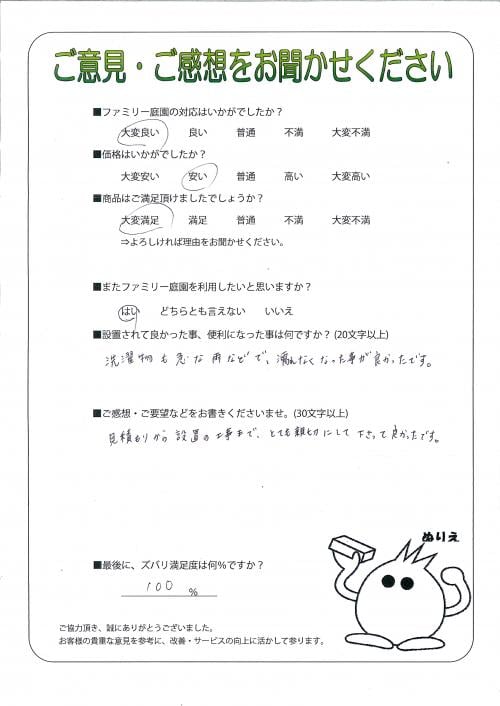 ご意見・ご感想をお聞かせください
■ファミリー庭園の対応はいかがでしたか?
大変良い 良い 普通 不満 大変不満
■価格はいかがでしたか?
大変安い 安い 普通 高い 大変高い
■商品はご満足頂けましたでしょうか?
大変満足 満足 普通 不満 大変不満
⇒よろしければ理由をお聞かせください。
■またファミリー庭園を利用したいと思いますか?
はい どちらとも言えない いいえ
■設置されて良かった事、便利になった事は何ですか?(20文字以上)
洗濯物も急な雨などで、濡れなくなった事が良かったです。
■ご感想・ご要望などをお書きくださいませ。(30文字以上)
見積もりから設置の工事まで、とても親切にして下さって良かったです。
ぬりえ
■最後に、ズバリ満足度は何%ですか?
100 %
ご協力頂き、誠にありがとうございました。
お客様の貴重な意見を参考に、改善・サービスの向上に活かして参ります。